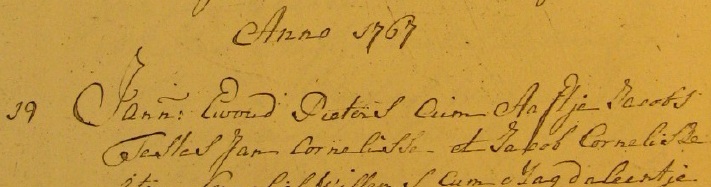 Anno 1767
19 Jann: Ewoud Pieters cum Aaftje Jacobs
Testes Jan Cornelisse et Jacob Cornelisse
cum Magdaleentje